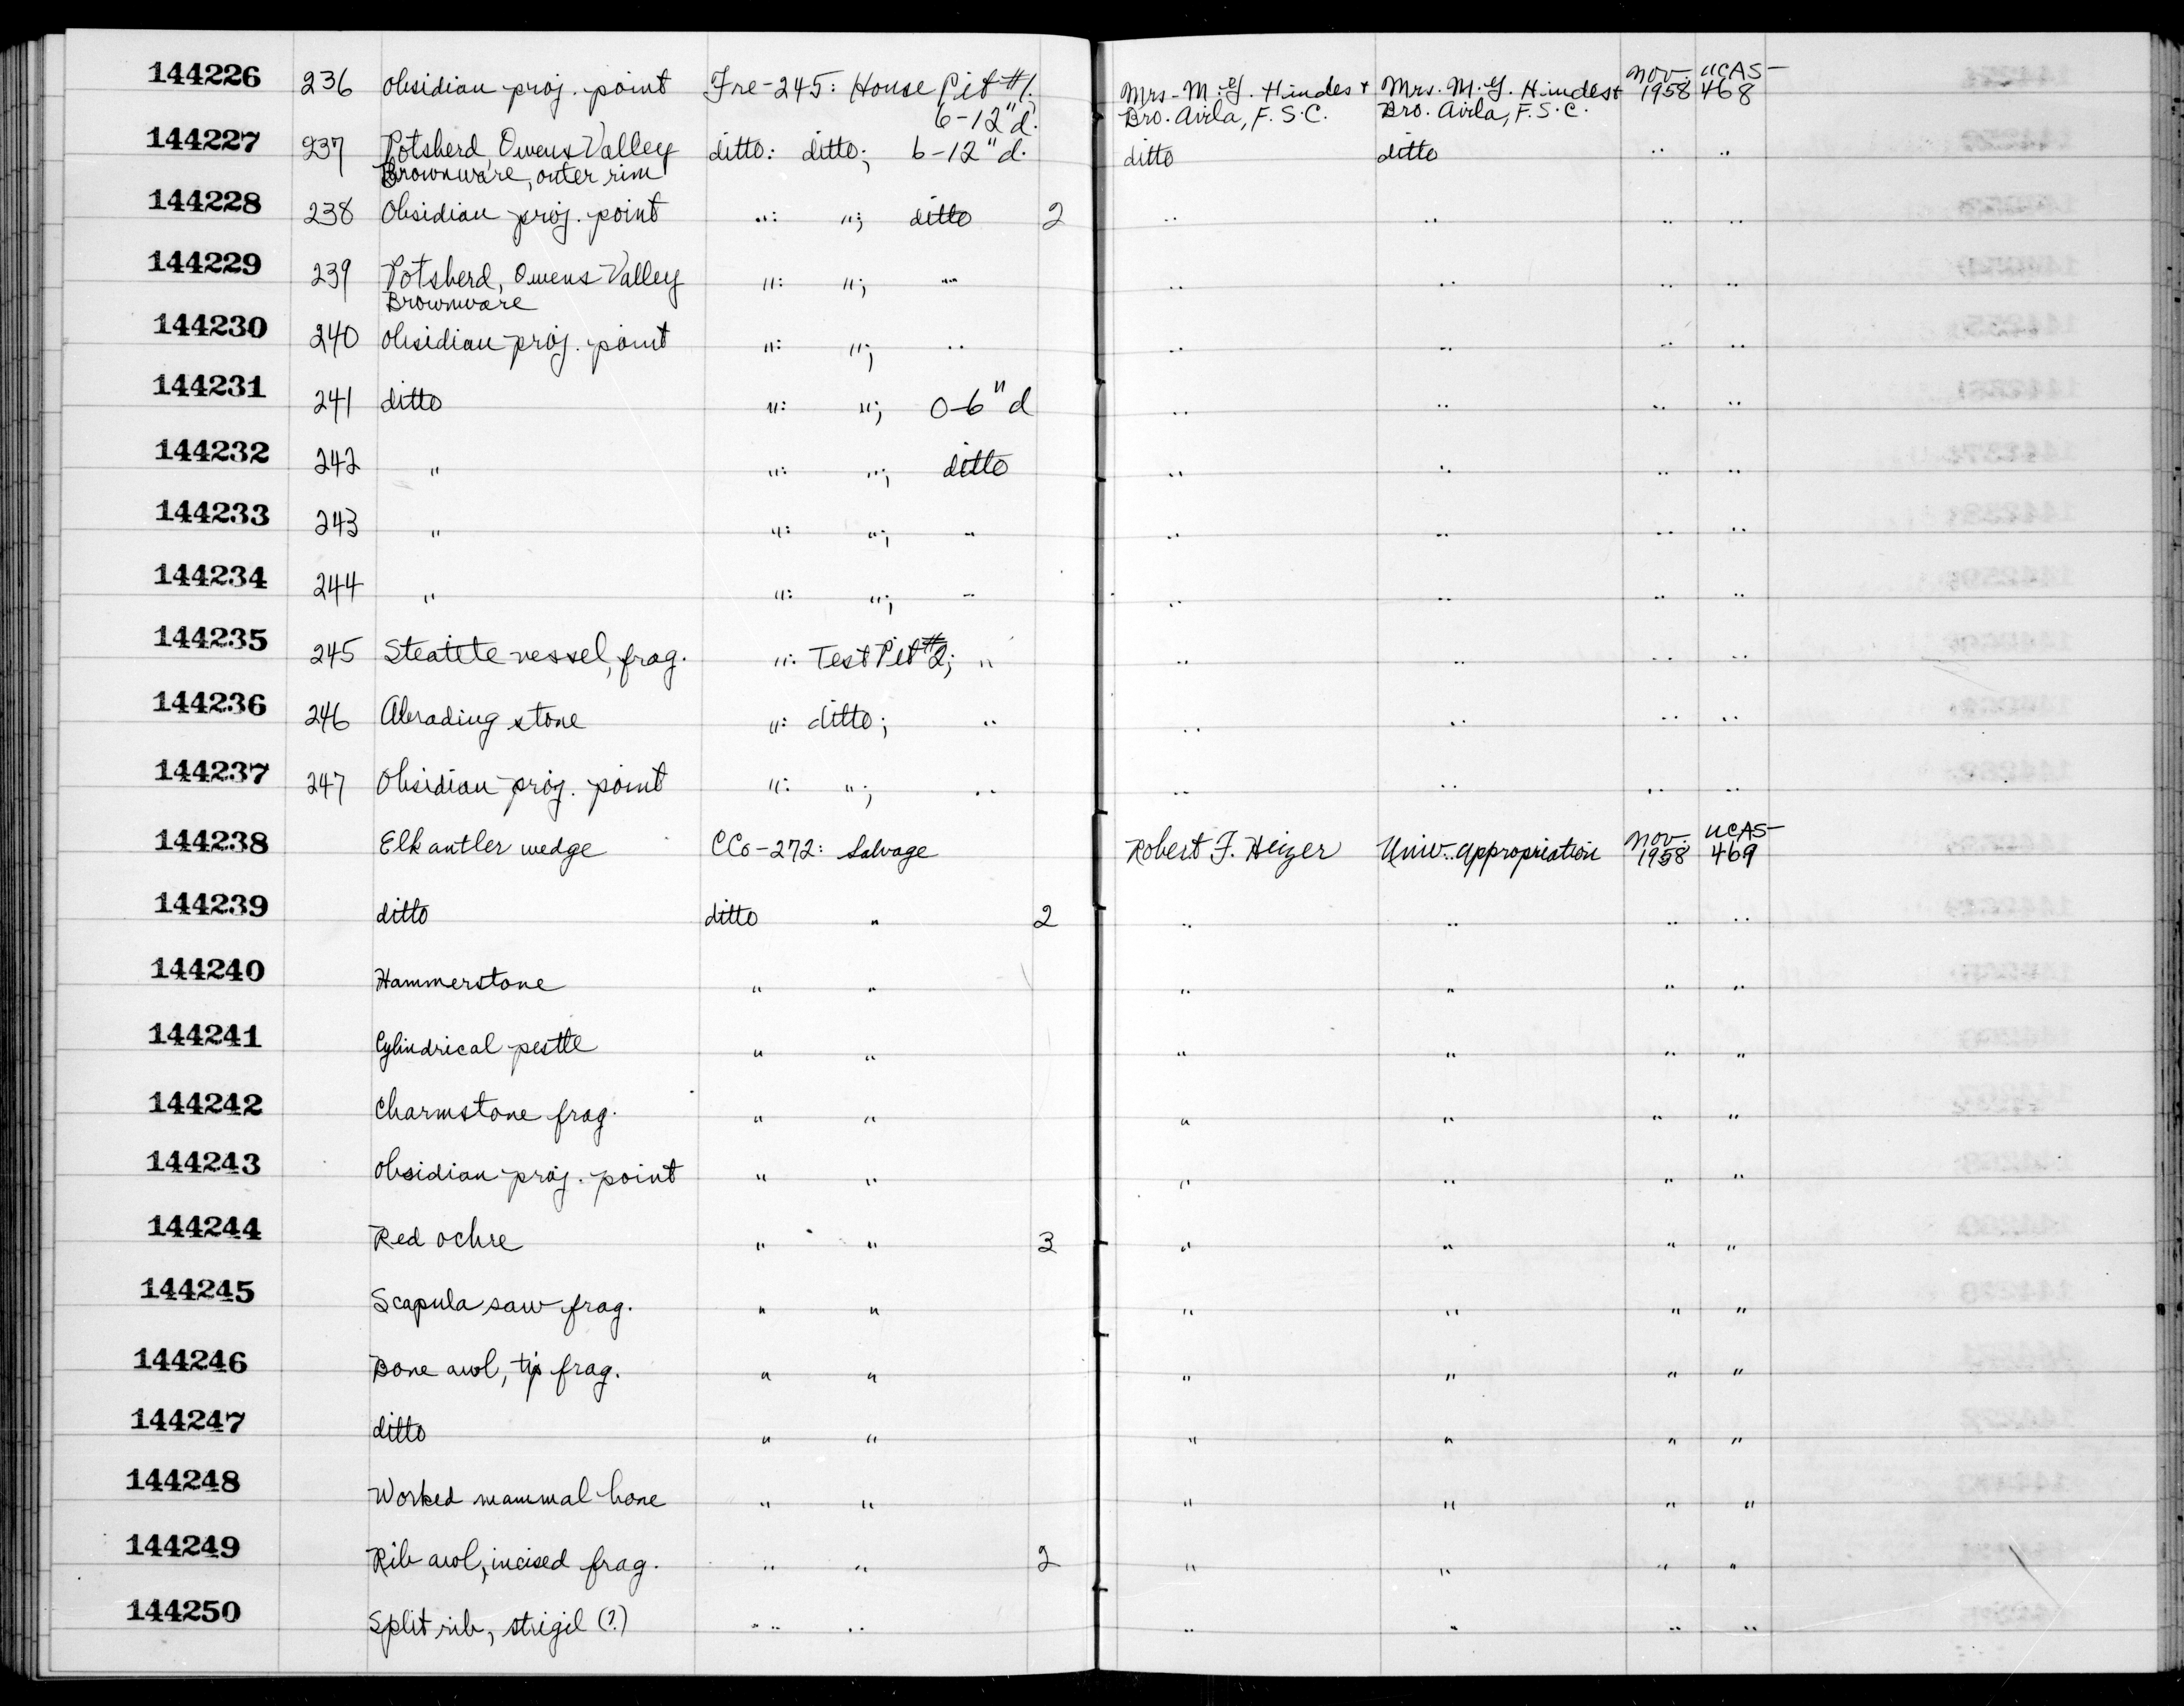 144226 236 Obsidian proj. point Fre-245: House Pit #1. 6-12"d. Mrs. M.G. Hindes + Bro. Avila, F.S.C. Mrs. M.G. Hindes + Bro. Avila, F.S.C. Nov. 1958 UCAS-468
144227 237 Potsherd, Owens Valley Brownware, outer rim ditto: ditto; 6-12"d. ditto ditto " "
144228 238 Obsidian proj. point ": "; ditto 2 " " " "
144229 239 Potsherd, Owens Valley Brownware ": "; " " " " "
144230 240 Obsidian proj. point ": "; " " " " "
144231 241 ditto ": "; 0-6"d " " " "
144232 242 " ": "; ditto " " " "
144233 243 " ": "; " " " " "
144234 244 " ": "; " " " " "
144235 245 Steatite vessel, frag. ": Test Pit #2; " " " " "
144236 246 Abrading stone ": ditto; " " " " "
144237 247 Obsidian proj. point ": "; " " " " "
144238 Elk antler wedge CCo-272: Salvage Robert F. Heizer Univ. appropriation Nov. 1958 UCAS-469
144239 ditto ditto " 2 " " " "
144240 Hammerstone " " " " " "
144241 Cylindrical pestle " " " " " "
144242 Charmstone frag. " " " " " "
144243 Obsidian proj. point " " " " " "
144244 Red ochre " " 3 " " " "
144245 Scapula saw frag. " " " " " "
144246 Bone awl, tip frag. " " " " " "
144247 ditto " " " " " "
144248 Worked mammal bone " " " " " "
144249 Rib awl, incised frag. " " 2 " " " "
144250 Split rib, strigil (?) " " " " " "